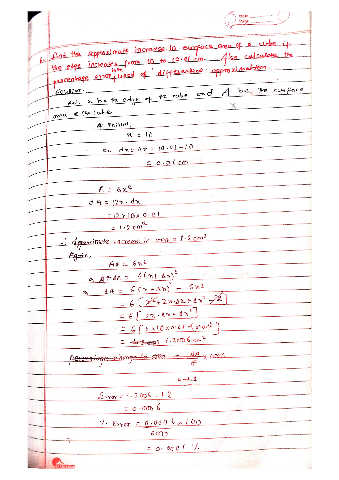 Find the approximate increase in surface area of a cube if
the edge increases from 10 to 10.01 cm. Also calculate the
percentage error in used of differential approximation
Solution,
Let x be the edge of the cube and A be the surface
area of cube
x = 10
dx = Δx = 10.01 - 10
= 0.01 cm
A = 6x²
dA = 12x. dx
= 12x10x0.01
= 1.2 cm²
∴ Approximate increase in area = 1.2 cm²
Again,
A = 6x²
= 6(x+Δx)²
ΔA = 6(x+Δx)² - 6x²
= 6[x²+2x.Δx+Δx²-x²]
= 6[2x.Δx+Δx²]
= 1.2006 cm²
Error = 1.2006 - 1.2
= 0.0006
% Error = 0.0006 x 100
600
= 0.0001 %